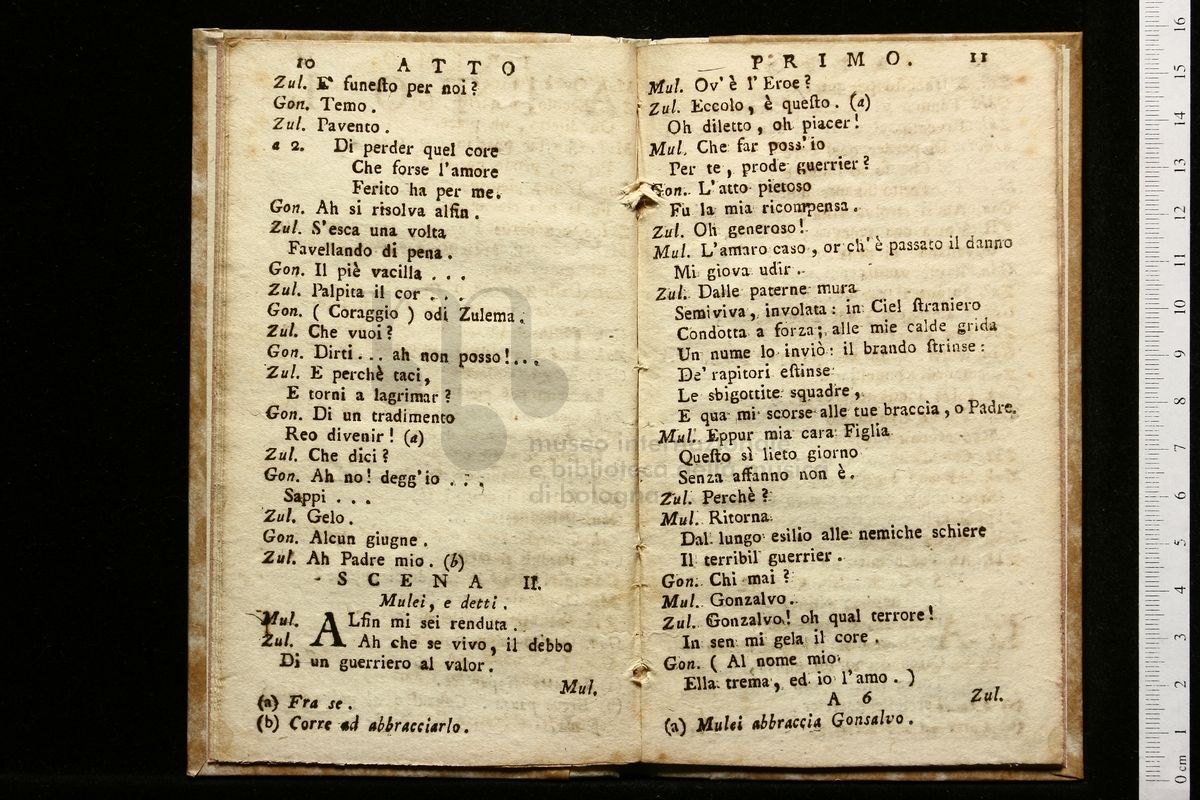 10 ATTO
Zul. E' funeſto per noi?
Gon. Temo.
Zul. Pavento.
a 2. Di perder quel core
Che forse l'amore
Ferito ha per me.
Gon. Ah si risolva alfin.
Zul. S'esca una volta
Favellando di pena.
Gon. Il piè vacilla . . .
Zul. Palpita il cor . . .
Gon. ( Coraggio ) odi Zulema.
Zul. Che vuoi?
Gon. Dirti... ah non posso!...
Zul. E perchè taci,
E torni a lagrimar?
Gon. Di un tradimento
Reo divenir! (a)
Zul. Che dici?
Gon. Ah no! degg'io . . .
Sappi . . .
Zul. Gelo.
Gon. Alcun giugne.
Zul. Ah Padre mio. (b)
SCENA II.
Mulei, e detti.
Mul. ALfin mi sei renduta.
Zul. Ah che se vivo, il debbo
Di un guerriero al valor.
Mul.
(a) Fra se.
(b) Corre ad abbracciarlo.
PRIMO. 11
Mul. Ov'è l'Eroe?
Zul. Eccolo, è queſto. (a)
Oh diletto, oh piacer!
Mul. Che far poss'io
Per te, prode guerrier?
Gon. L'atto pietoso
Fu la mia ricompensa.
Zul. Oh generoso!
Mul. L'amaro caso, or ch'è passato il danno
Mi giova udir.
Zul. Dalle paterne mura
Semiviva, involata: in Ciel ſtraniero
Condotta a forza; alle mie calde grida
Un nume lo inviò: il brando ſtrinse:
De' rapitori eſtinse
Le sbigottite squadre,
E qua mi scorse alle tue braccia, o Padre.
Mul. Eppur mia cara Figlia
Queſto sì lieto giorno
Senza affanno non è.
Zul. Perchè?
Mul. Ritorna
Dal lungo esilio alle nemiche schiere
Il terribil guerrier.
Gon. Chi mai?
Mul. Gonzalvo.
Zul. Gonzalvo! oh qual terrore!
In sen mi gela il core.
Gon. ( Al nome mio
Ella trema, ed io l'amo. )
A 6 Zul.
(a) Mulei abbraccia Gonsalvo.
museo internazionale
e biblioteca della musica
di bologna
0 cm 1 2 3 4 5 6 7 8 9 10 11 12 13 14 15 16